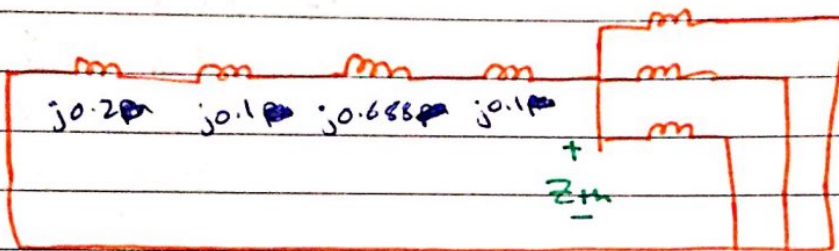 j0.2 j0.1 j0.688 j0.1
+
Zth
-